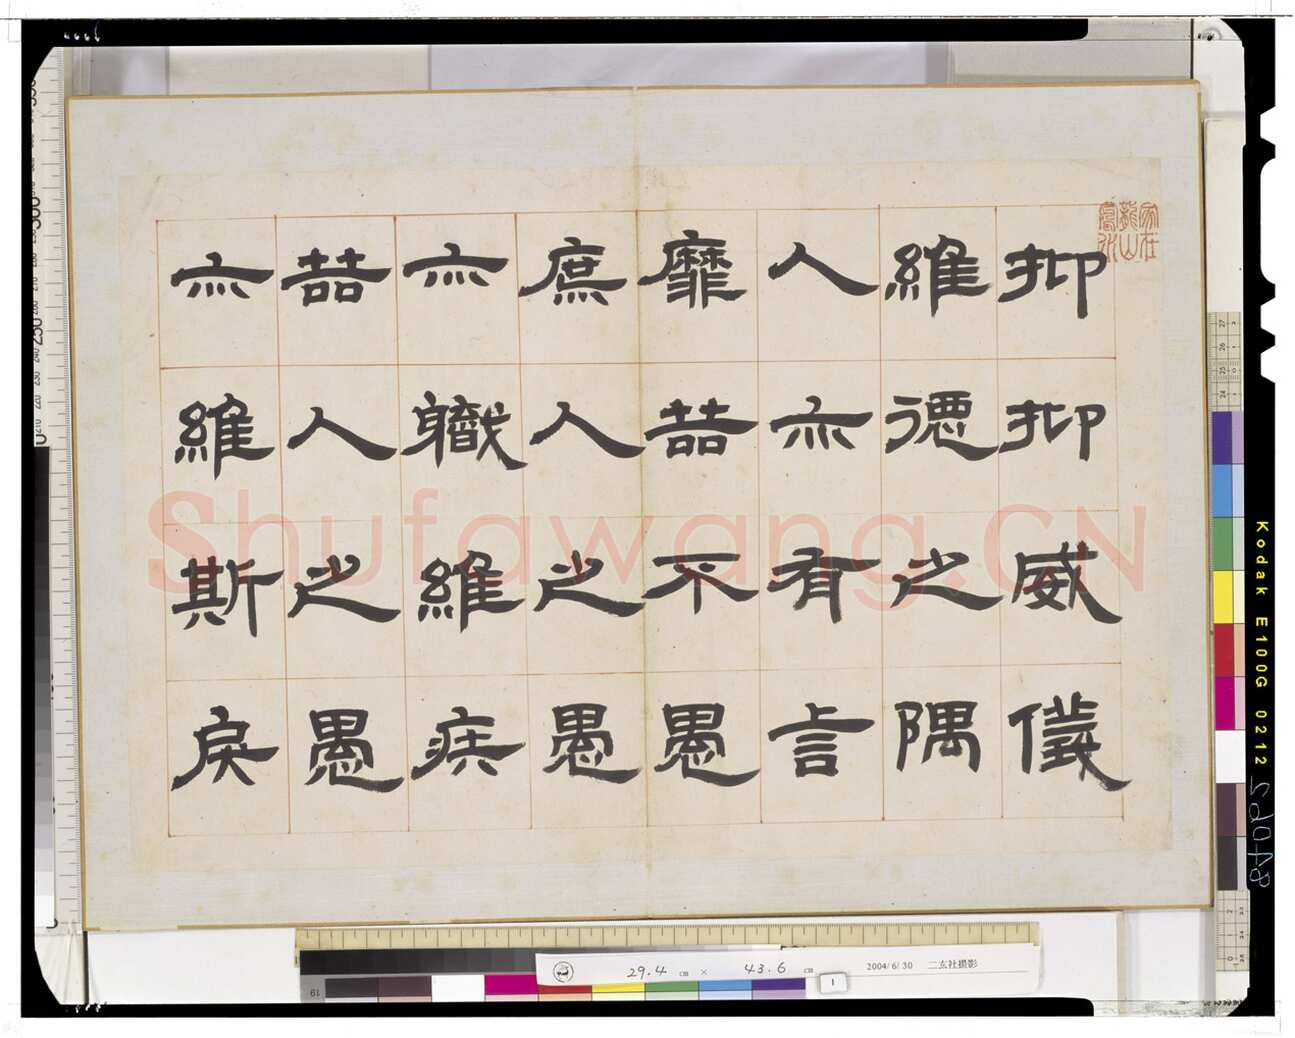 抑抑威儀
維德之隅
人亦有言
靡喆不愚
庶人之愚
亦職維疾
喆人之愚
亦維斯戾
家在龍山
Shufawang.CN
Kodak E100G 0212
29.4 cm × 43.6 cm
2004/6/30 二玄社撮影
1
19